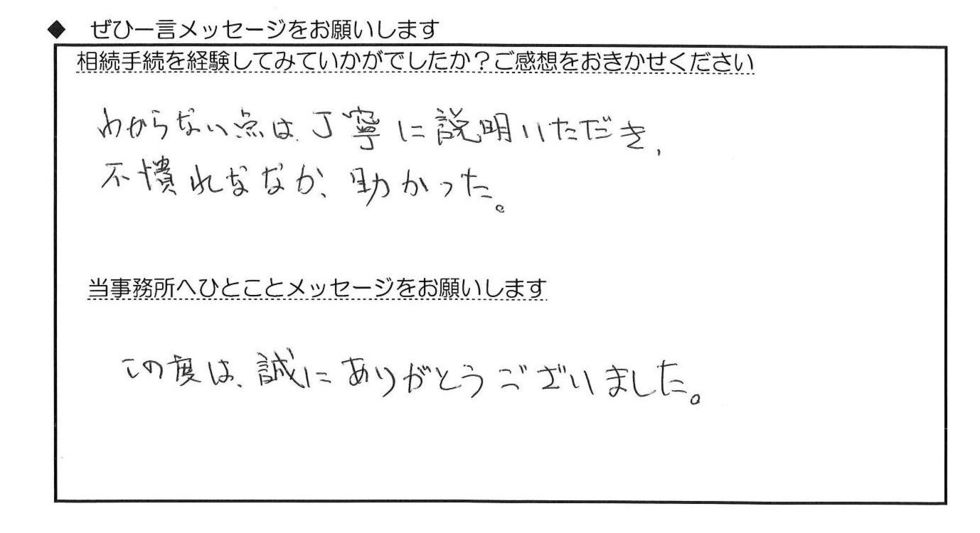 ◆ ぜひ一言メッセージをお願いします
相続手続を経験してみていかがでしたか？ご感想をおきかせください
わからない点は、丁寧に説明いただき、
不慣れななか、助かった。
当事務所へひとことメッセージをお願いします
この度は、誠にありがとうございました。